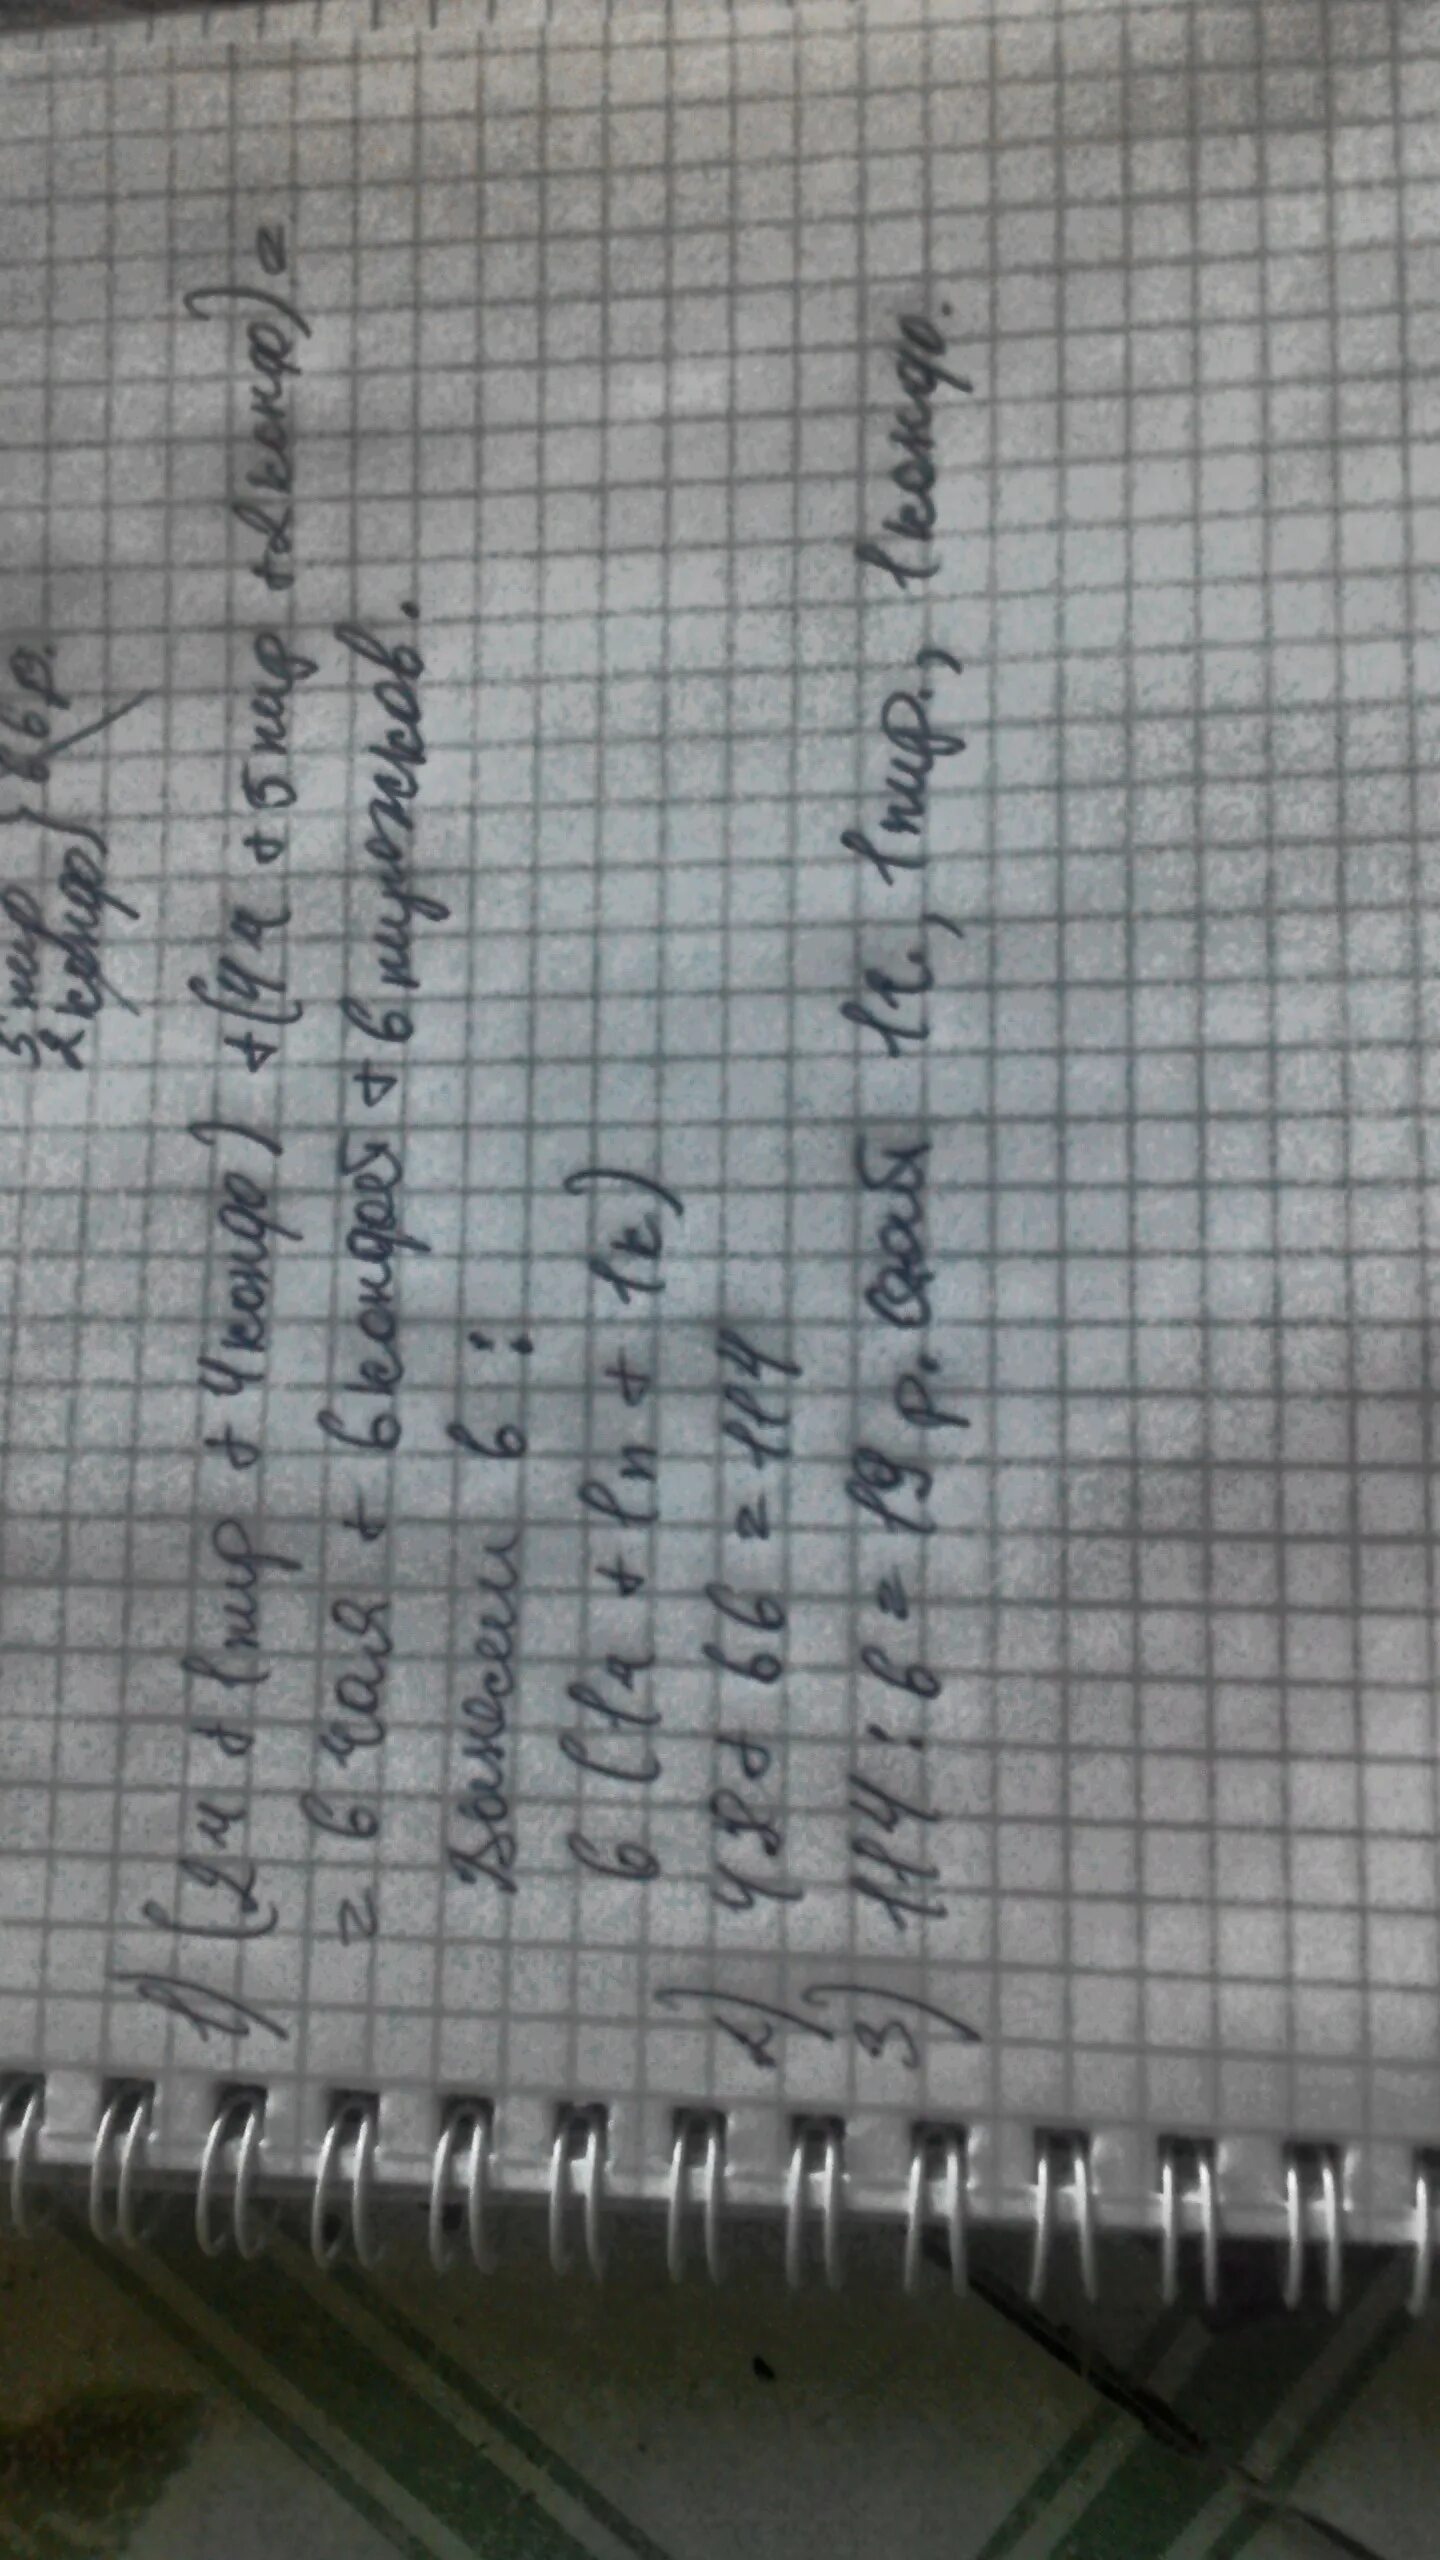 5 пир
2 конф } 66 р.
1) (2ч + 1пир + 4конф) + (4ч + 5пир + 2конф) =
= 6 чая + 6конфет + 6пирожков.
Вынесем 6:
6 (1ч + 1п + 1к)
2) 48 + 66 = 114
3) 114 : 6 = 19 р. стоит 1ч., 1пир., 1конф.